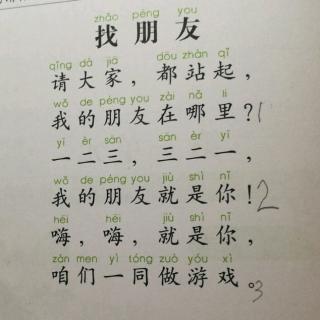 zhǎo péng you
找朋友
qǐng dà jiā dōu zhàn qǐ
请大家，都站起，
wǒ de péng you zài nǎ li
我的朋友在哪里？1
yī èr sān sān èr yī
一二三，三二一，
wǒ de péng you jiù shì nǐ
我的朋友就是你！2
hēi hēi jiù shì nǐ
嗨，嗨，就是你，
zán men yì tóng zuò yóu xì
咱们一同做游戏。3